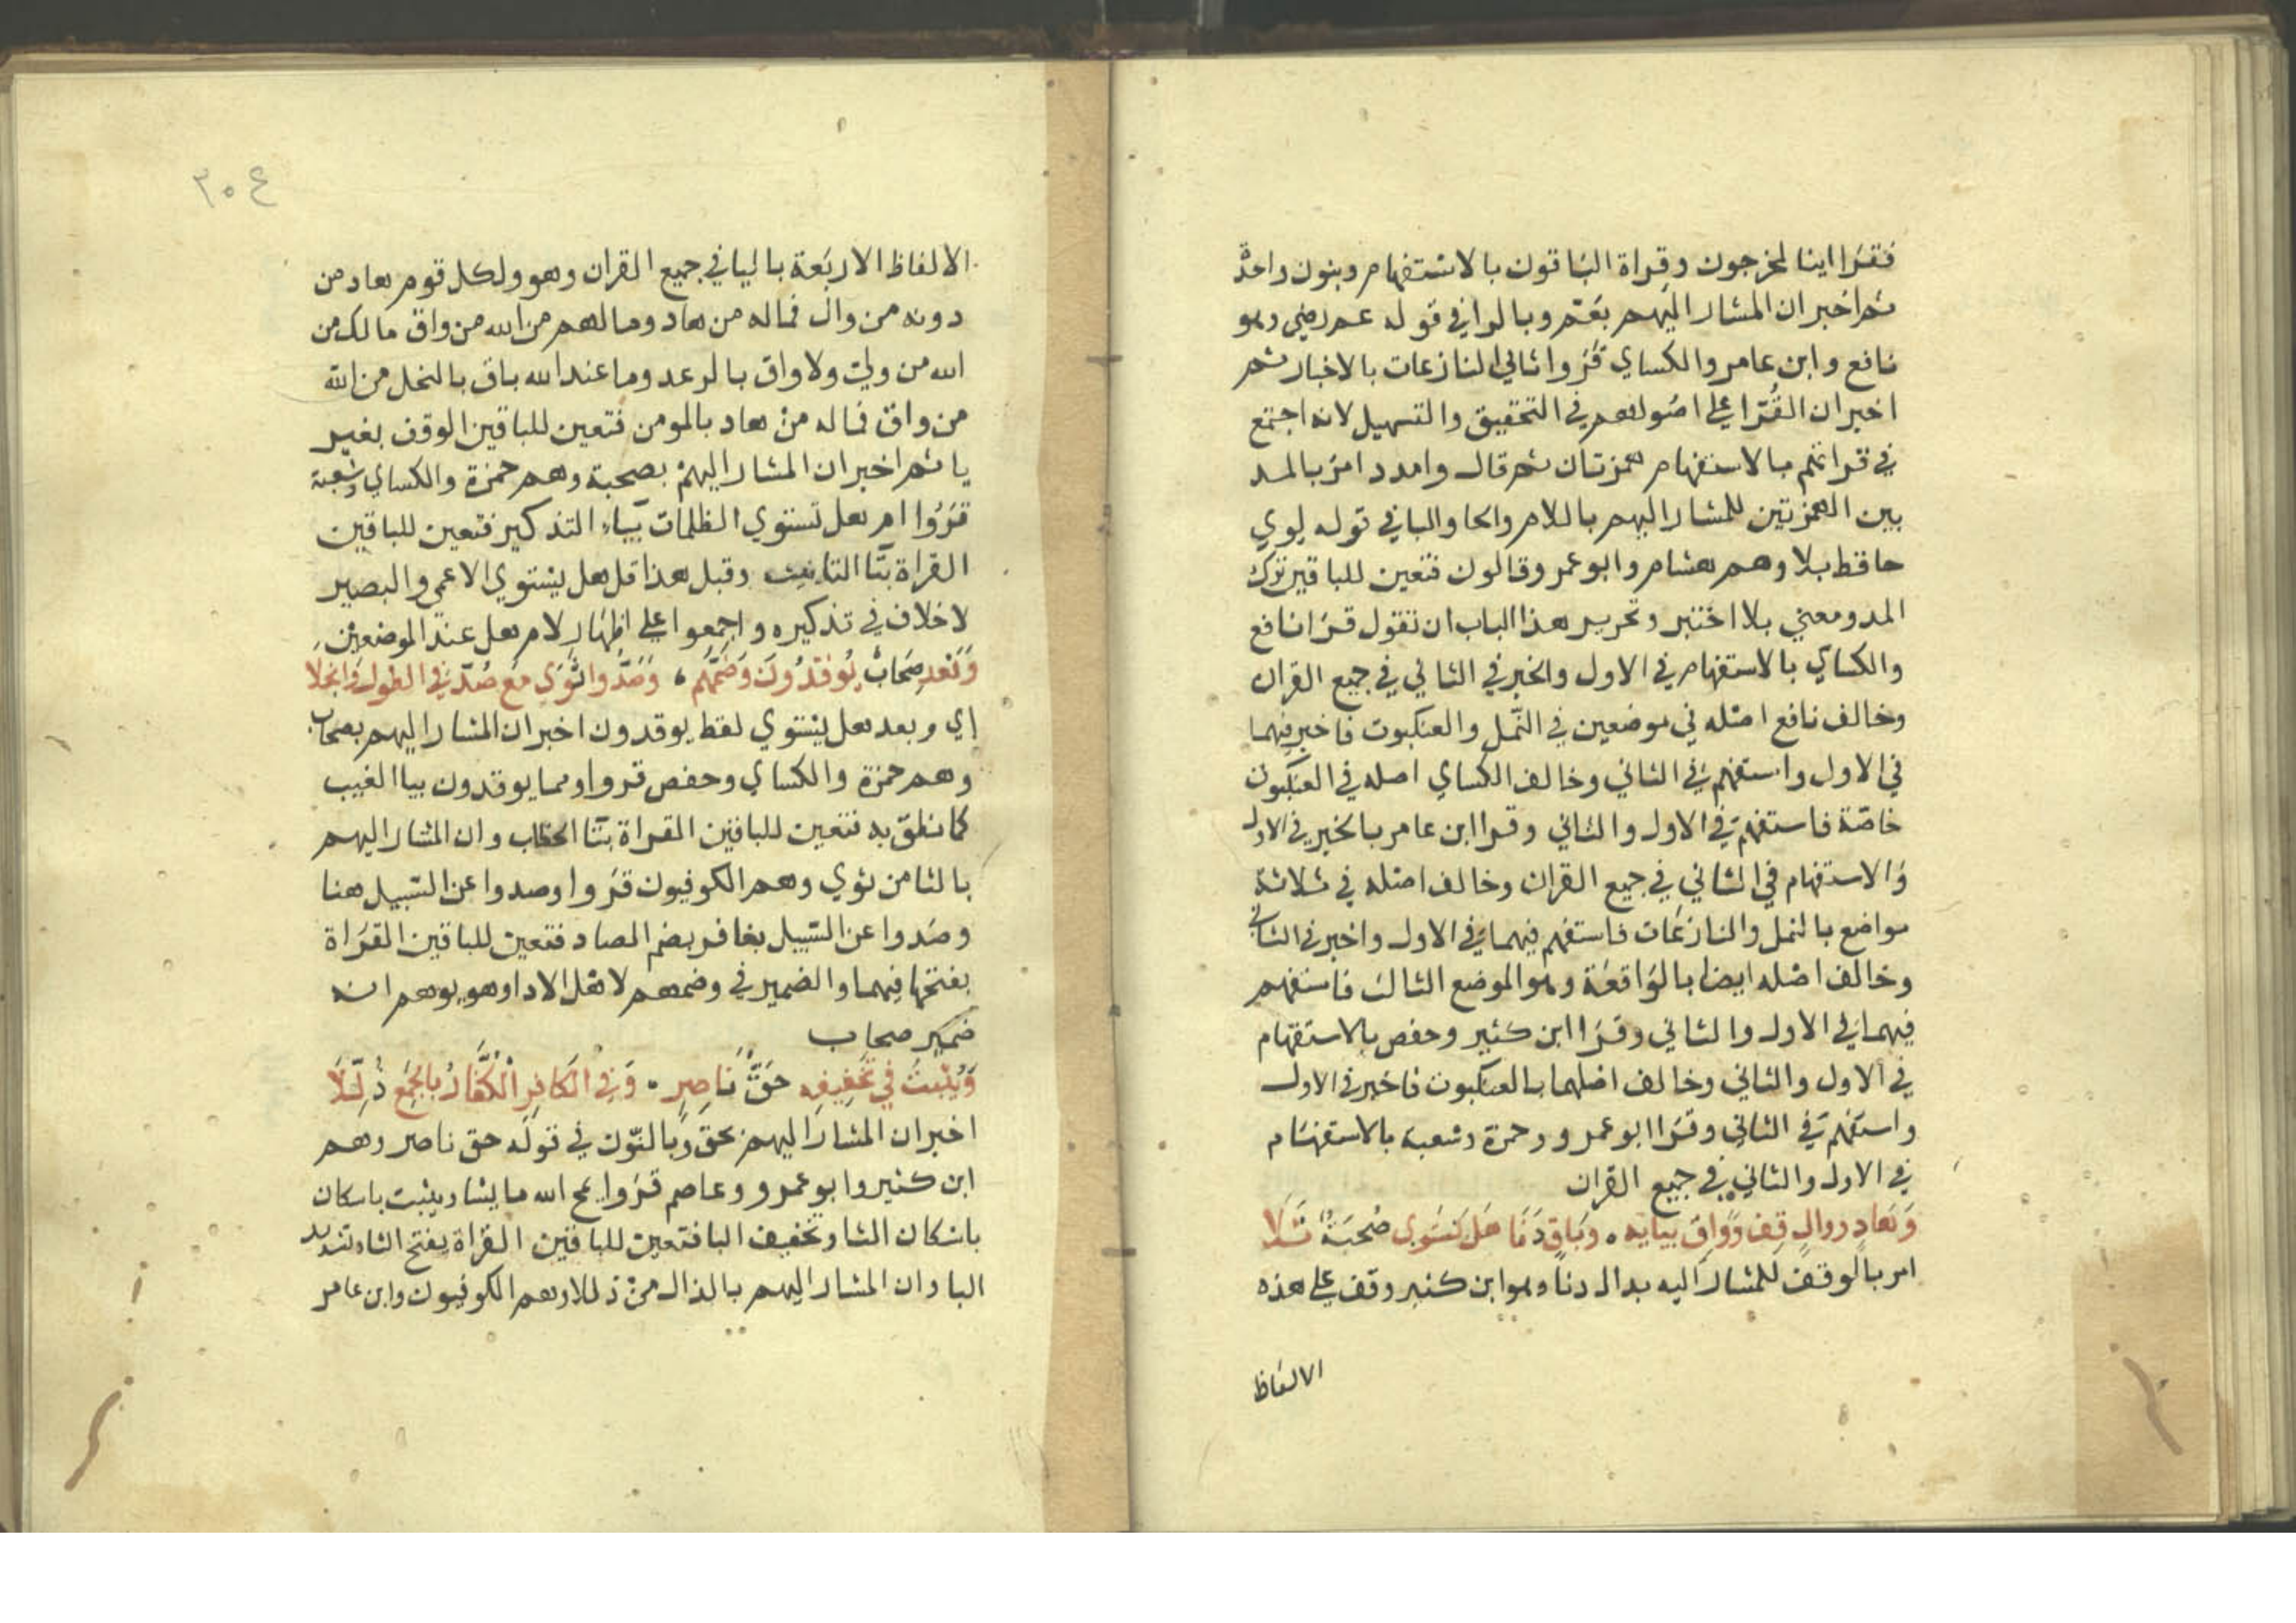 فقرا اينا لمخرجون وقراة الباقون بالاستفهام وبنون واحدة
ثم اخبر ان المشار اليهم بعم وبالرا في قوله عم رضى وهو
نافع وابن عامر والكساي قروا ثاني النازعات بالاخبار ثم
اخبر ان القرا على اصولهم في التحقيق والتسهيل لانه اجتمع
في قراتهم بالاستفهام همزتان ثم قال وامدد امر بالمد
بين الهمزتين للمشار اليهم باللام والحا والبا في قوله لوى
حافظ بلا وهم هشام وابو عمر وقالون فتعين للباقين ترك
المد ومعنى بلا اختبر وتحرير هذا الباب ان تقول قرا نافع
والكساي بالاستفهام في الاول والخبر في الثاني في جميع القران
وخالف نافع اصله في موضعين في النمل والعنكبوت فاخبر فيهما
في الاول واستفهم في الثاني وخالف الكساي اصله في العنكبوت
خاصة فاستفهم في الاول والثاني وقرا ابن عامر بالخبر في الاول
والاستفهام في الثاني في جميع القران وخالف اصله في ثلاثة
مواضع بالنمل والنازعات فاستفهم فيهما في الاول واخبر في الثاني
وخالف اصله ايضا بالواقعة وهو الموضع الثالث فاستفهم
فيهما في الاول والثاني وقرا ابن كثير وحفص بالاستفهام
في الاول والثاني وخالف اصلهما بالعنكبوت فاخبر في الاول
واستفهم في الثاني وقرا ابو عمرو وحمزة وشعبة بالاستفهام
في الاول والثاني في جميع القران
وَهادٍ ووالٍ قِف وَواقٍ بيايه ۰ وَباقٍ دَنَا هَل يَستوي صُحبَةٌ تَلَا
امر بالوقف للمشار اليه بدال دنا وهو ابن كثير وقف على هذه
الالفاظ
٣٠٤
الالفاظ الاربعة باليا في جميع القران وهو ولكل قوم هاد من
دونه من وال فماله من هاد وما لهم من الله من واق مالك من
الله من ولي ولا واق بالرعد وما عند الله باق بالنحل من الله
من واق فماله من هاد بالمومن فتعين للباقين الوقف بغير
يا ثم اخبر ان المشار اليهم بصحبة وهم حمزة والكساي وشعبة
قرؤا ام هل تستوي الظلمات بياء التذكير فتعين للباقين
القراة بتا التانيث وقبل هذا قل هل يستوي الاعمى والبصير
لا خلاف في تذكيره واجمعوا على اظهار لام هل عند الموضعين
وَبَعد صِحَابٌ يُوقدُونَ وَضَمُّهُم ، وَصُدُّوا ثَوَى مَع صُدَّ في الطول وَانجلا
اي وبعد هل يستوي لفظ يوقدون اخبر ان المشار اليهم بصحاب
وهم حمزة والكساي وحفص قروا ومما يوقدون بيا الغيب
كما نطق به فتعين للباقين القراة بتا الخطاب وان المشار اليهم
بالثا من ثوى وهم الكوفيون قروا وصدوا عن السبيل هنا
وصدوا عن السبيل بغافر بضم الصاد فتعين للباقين القراة
بفتحها فيهما والضمير في وضمهم لاهل الادا وهو يوهم انه
ضمير صحاب
وَيُثْبتُ في تخفيفِه حَقُّ نَاصِرٍ ۰ وَفي الكَافِرِ الْكُفَّارُ بالجَمعِ ذُلِّلَا
اخبر ان المشار اليهم بحق وبالنون في قوله حق ناصر وهم
ابن كثير وابو عمرو وعاصم قروا يمح الله ما يشا ويثبت باسكان
باسكان الثا وتخفيف البا فتعين للباقين القراة بفتح الثا وتشديد
البا وان المشار اليهم بالذال من ذللا وهم الكوفيون وابن عامر